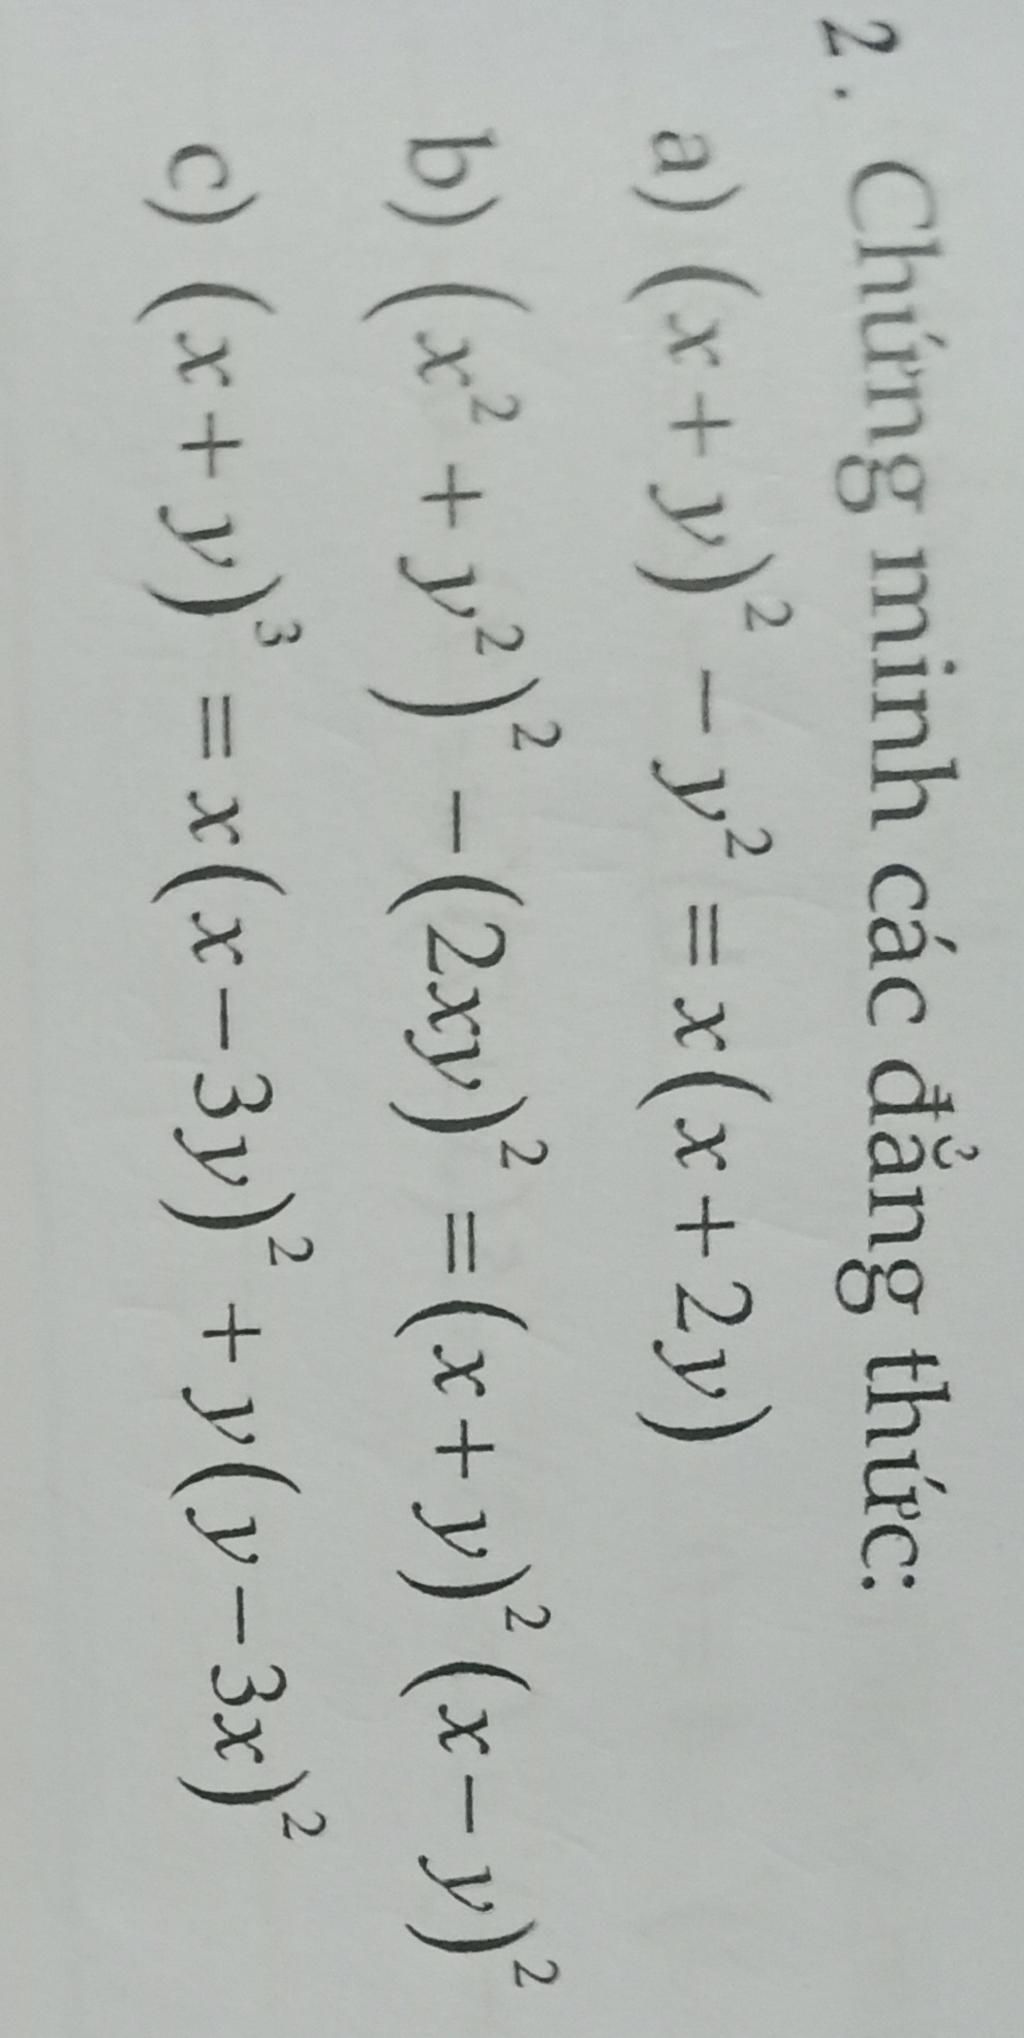 2. Chứng minh các đẳng thức:
a) (x + y)² − y² = x(x + 2y)
b) (x² + y²)² − (2xy)² = (x + y)² (x − y)²
c) (x + y)³ = x(x − 3y)² + y(y − 3x)²